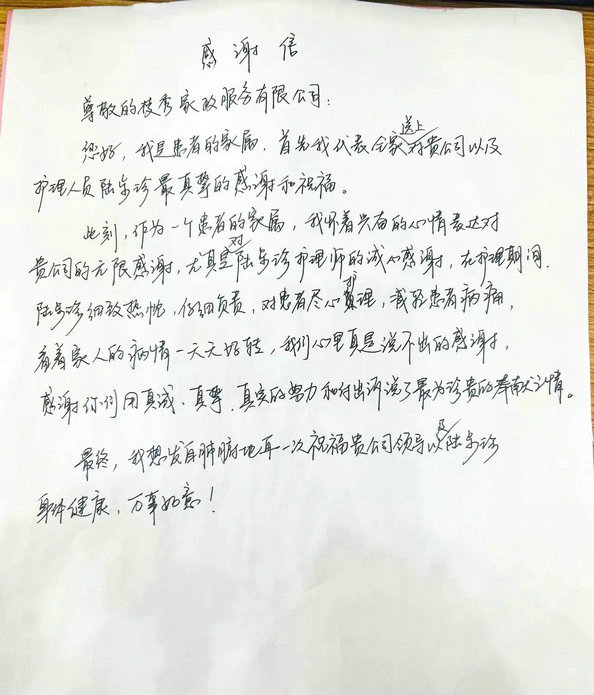 感谢信
尊敬的枝秀家政服务有限公司：
您好，我是患者的家属，首先我代表全家送上对贵公司以及
护理人员陆家珍最真挚的感谢和祝福。
此刻，作为一个患者的家属，我怀着兴奋的心情表达对
贵公司的无限感谢，尤其是对陆家珍护理师的诚心感谢，在护理期间，
陆家珍细致热忱，仔细负责，对患者尽心护理，减轻患者病痛，
看着家人的病情一天天好转，我们心里真是说不出的感谢，
感谢你们用真诚、真挚、真实的努力和付出诉说了最为珍贵的奉献之情。
最终，我想发自肺腑地再一次祝福贵公司领导以及陆家珍
身体健康、万事如意！